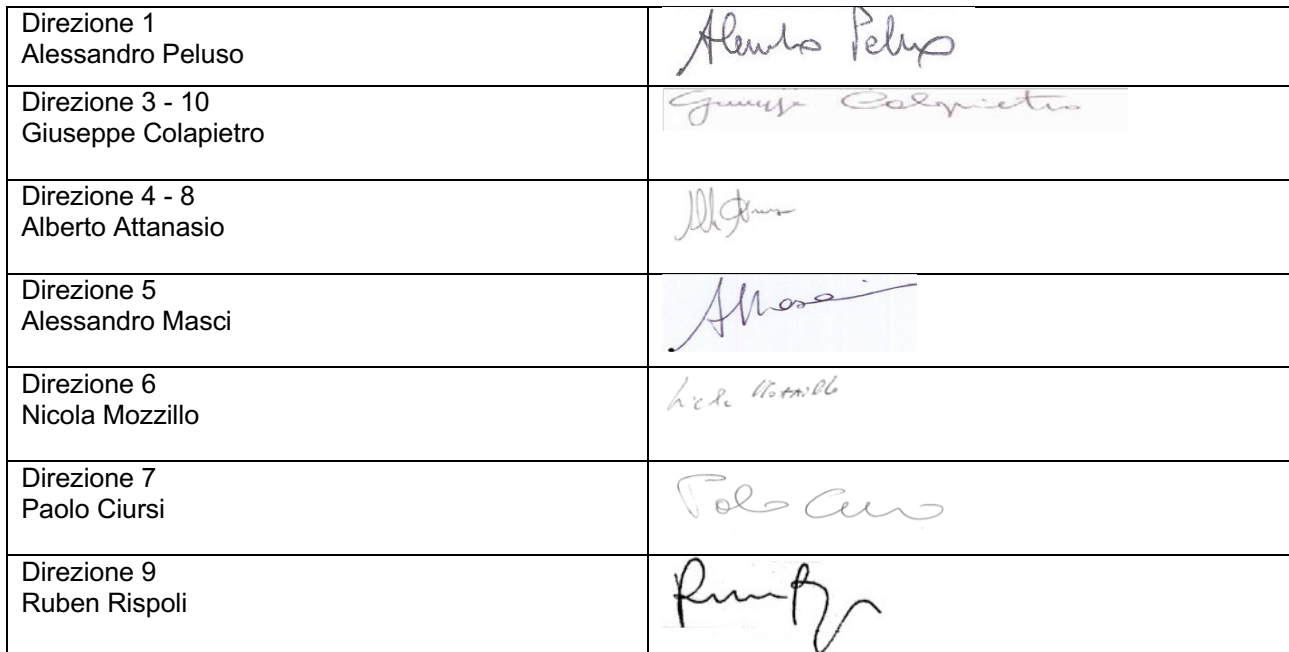 Direzione 1
Alessandro Peluso
Direzione 3 - 10
Giuseppe Colapietro
Giuseppe Colapietro
Direzione 4 - 8
Alberto Attanasio
Direzione 5
Alessandro Masci
Direzione 6
Nicola Mozzillo
Nicola Mozzillo
Direzione 7
Paolo Ciursi
Direzione 9
Ruben Rispoli